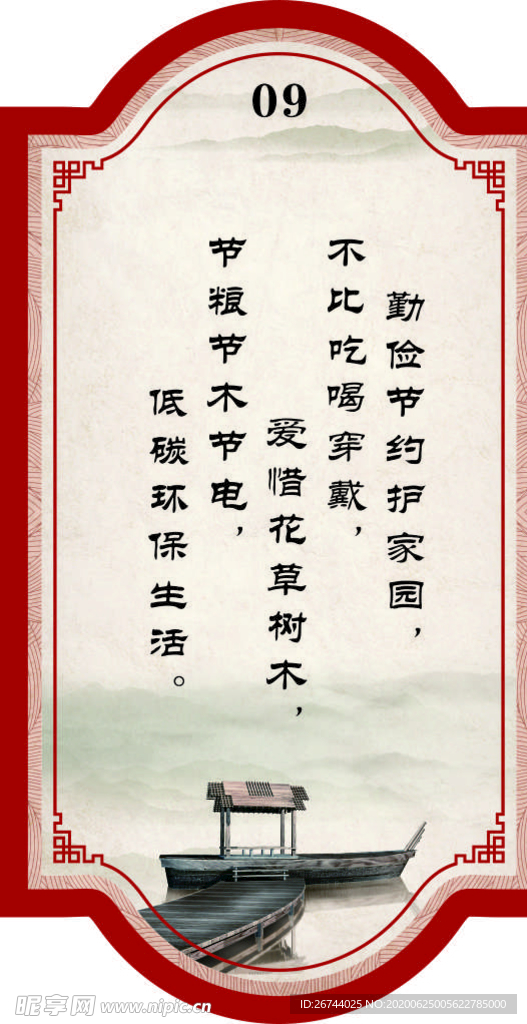 09
勤俭节约护家园，
不比吃喝穿戴，
爱惜花草树木，
节粮节木节电，
低碳环保生活。
昵享网 www.nipic.cn
ID:26744025 NO:20200625005622785000